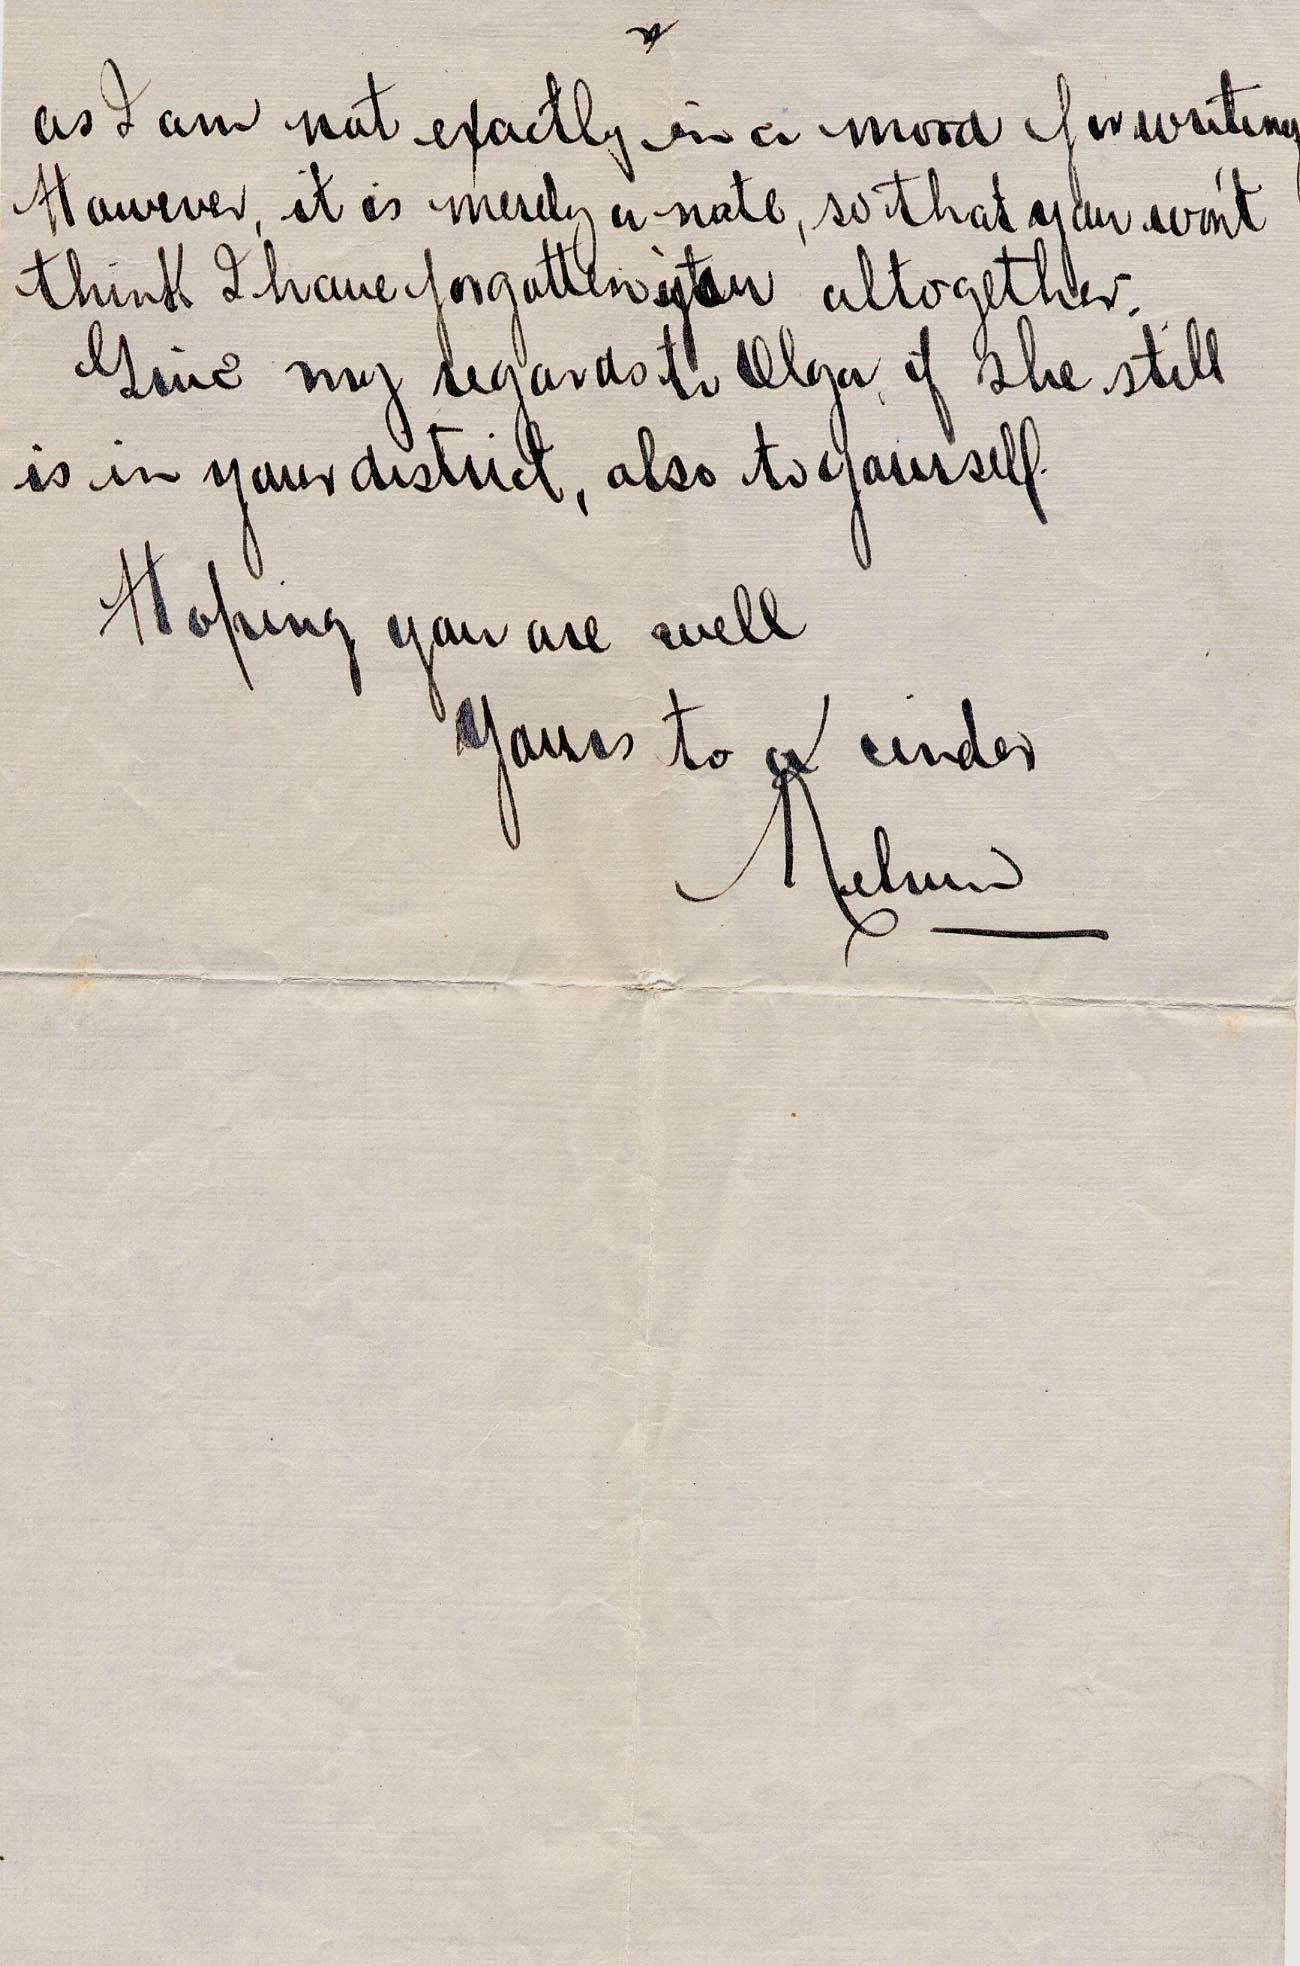 as I am not exactly in a mood for writing
However, it is merely a note, so that you won't
think I have forgotten you altogether.
Give my regards to Olga, if she still
is in your district, also to yourself.
Hoping you are well
Yours to a cinder